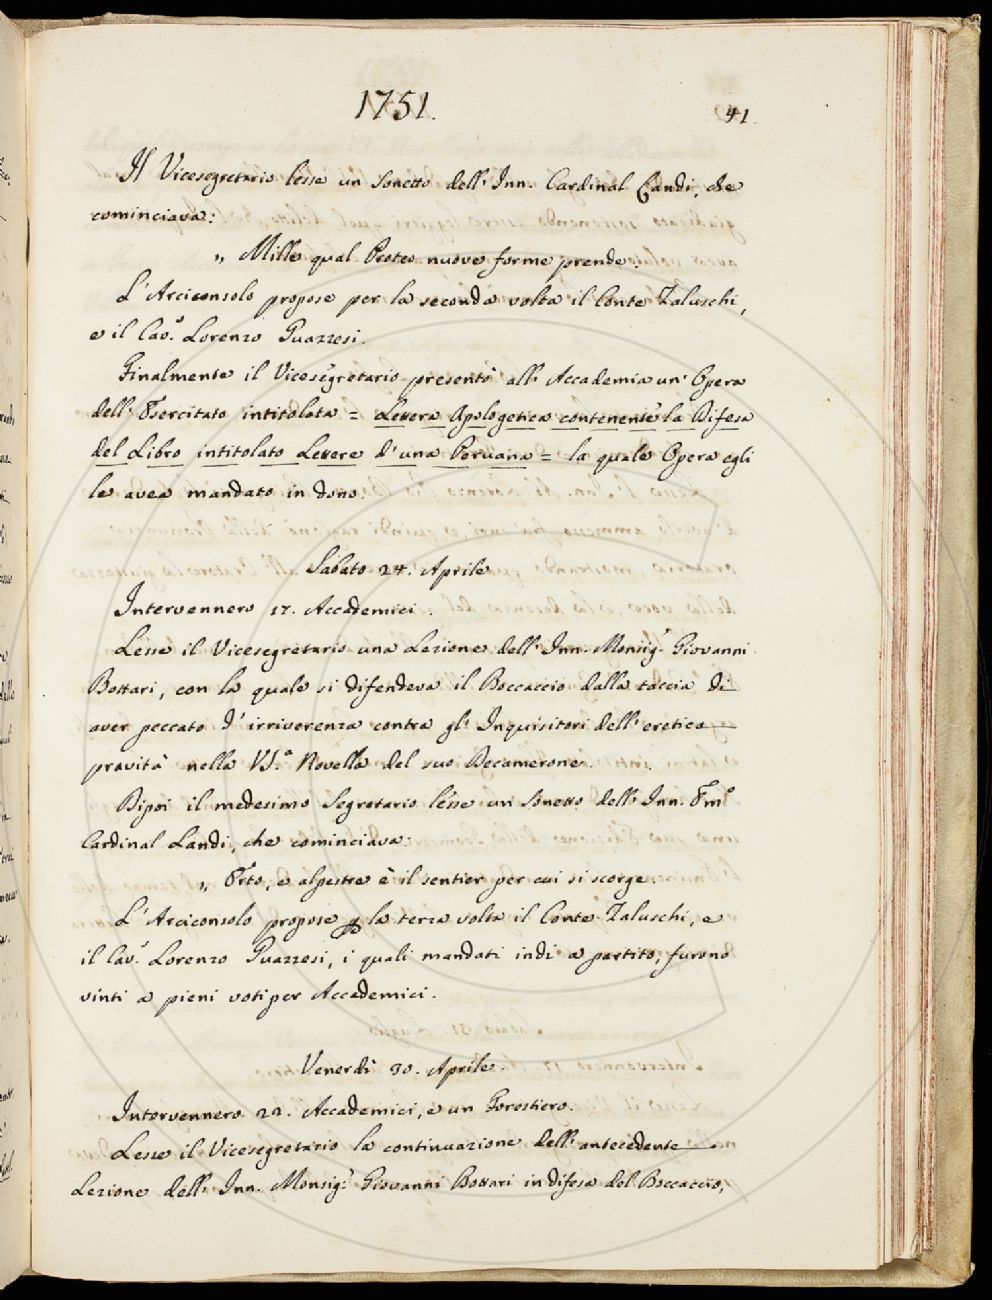 1751.
41
Il Vicesegretario lesse un Sonetto dell' Inn. Cardinal Landi, che
cominciava:
„ Mille qual Proteo nuove forme prende.
L' Arciconsolo propose per la seconda volta il Conte Zaluschi,
e il Cav.e Lorenzo Guazzesi.
Finalmente il Vicesegretario presentò all' Accademia un' Opera
dell' Esercitato intitolata = Lettera Apologetica contenente la Difesa
del Libro intitolato Lettere d' una Peruana = la quale Opera egli
le avea mandato in dono.
Sabato 24. Aprile
Intervennero 17. Accademici.
Lesse il Vicesegretario una Lezione dell' Inn. Monsig.r Giovanni
Bottari, con la quale si difendeva il Boccaccio dalla taccia di
aver peccato d' irriverenza contra gl' Inquisitori dell' eretica
pravità nella VI.a Novella del suo Decamerone.
Dipoi il medesimo Segretario lesse un Sonetto dell' Inn. Em.o
Cardinal Landi, che cominciava:
„ Erto, e alpestre è il sentier per cui si scorge.
L' Arciconsolo propose p la terza volta il Conte Zaluschi, e
il Cav.r Lorenzo Guazzesi, i quali mandati indi a partito, furono
vinti a pieni voti per Accademici.
Venerdì 30. Aprile.
Intervennero 22. Accademici, e un Forestiero.
Lesse il Vicesegretario la continuazione dell' antecedente
Lezione dell' Inn. Monsig.r Giovanni Bottari in difesa del Boccaccio,